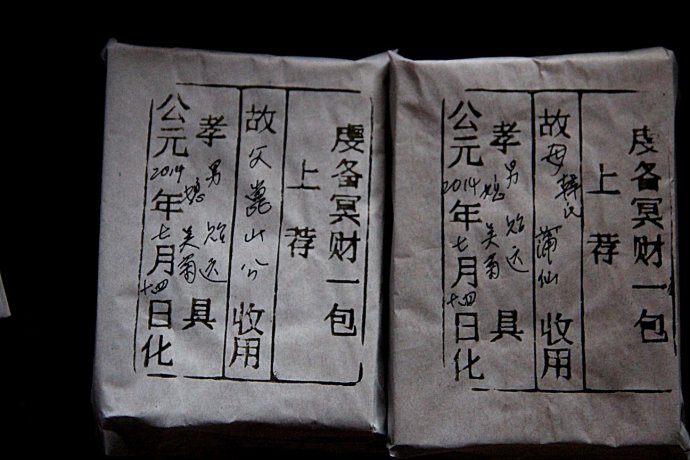 虔备冥财一包
上荐
故父山公收用
孝男媳具
公元2014年七月十四日化
虔备冥财一包
上荐
故母氏蒲仙收用
孝男媳具
公元2014年七月十四日化